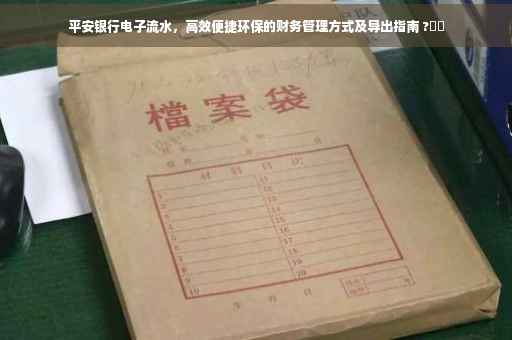 平安银行电子流水，高效便捷环保的财务管理方式及导出指南 ?
檔案袋
材料目次
1 11
2 12
3 13
4 14
5 15
6 16
7 17
8 18
9 19
10 20
年 月 日